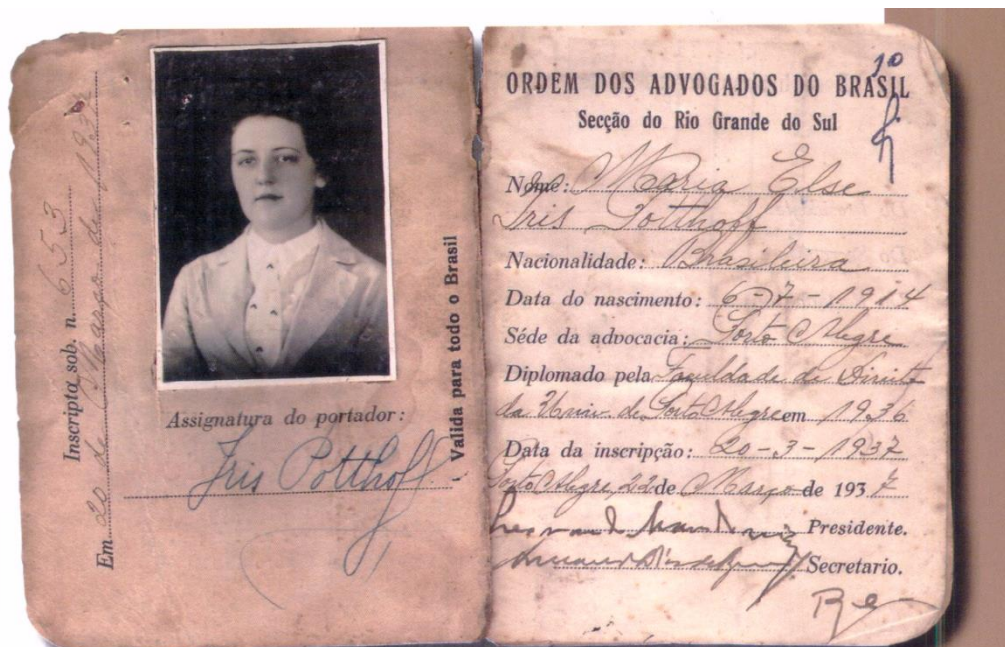 Inscripta sob. n. 653
Em 20 de Março de 1937
Assignatura do portador:
Iris Potthoff
Valida para todo o Brasil
10
ORDEM DOS ADVOGADOS DO BRASIL
Secção do Rio Grande do Sul
Nome: Maria Else
Iris Potthoff
Nacionalidade: Brasileira
Data do nascimento: 6-7-1914
Séde da advocacia: Porto Alegre
Diplomado pela Faculdade de Direito
da Univ. de Porto Alegre em 1936
Data da inscripção: 20-3-1937
Porto Alegre, 22 de Março de 1937
Presidente.
Secretario.